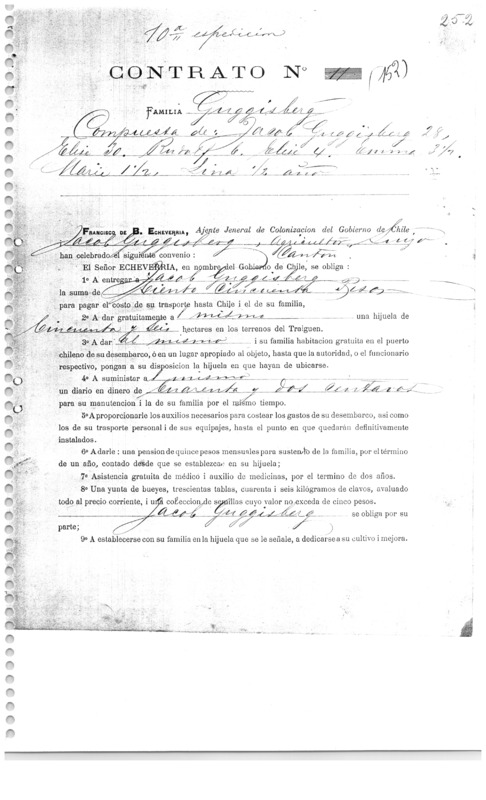 252
10ª expedicion
CONTRATO Nº 11 (152)
FAMILIA Guggisberg
Compuesta de: Jacob Guggisberg 28,
Elise 30. Rudolf 6. Elise 4. Emma 3½.
Marie 1½, Lina ½ año
FRANCISCO DE B. ECHEVERRIA, Ajente Jeneral de Colonizacion del Gobierno de Chile
Jacob Guggisberg, Agricultor,
han celebrado el siguiente convenio: Canton.
El Señor ECHEVERRIA, en nombre del Gobierno de Chile, se obliga:
1º A entregar a Jacob Guggisberg
la suma de Ciento Cincuenta Pesos
para pagar el costo de su trasporte hasta Chile i el de su familia,
2º A dar gratuitamente al mismo una hijuela de
Cincuenta y seis hectares en los terrenos del Traiguen.
3º A dar al mismo i su familia habitacion gratuita en el puerto
chileno de su desembarco, ó en un lugar apropiado al objeto, hasta que la autoridad, o el funcionario
respectivo, pongan a su disposicion la hijuela en que hayan de ubicarse.
4º A suministrar al mismo
un diario en dinero de Cuarenta y dos centavos
para su manutencion i la de su familia por el mismo tiempo.
5º A proporcionarle los auxilios necesarios para costear los gastos de su desembarco, asi como
los de su trasporte personal i de sus equipajes, hasta el punto en que quedarán definitivamente
instalados.
6º A darle: una pension de quince pesos mensuales para sustento de la familia, por el término
de un año, contado desde que se establezca en su hijuela;
7º Asistencia gratuita de médico i auxilio de medicinas, por el termino de dos años.
8º Una yunta de bueyes, trescientas tablas, cuarenta i seis kilógramos de clavos, avaluado
todo al precio corriente, i una coleccion de semillas cuyo valor no exceda de cinco pesos.
Jacob Guggisberg se obliga por su
parte;
9º A establecerse con su familia en la hijuela que se le señale, a dedicarse a su cultivo i mejora.